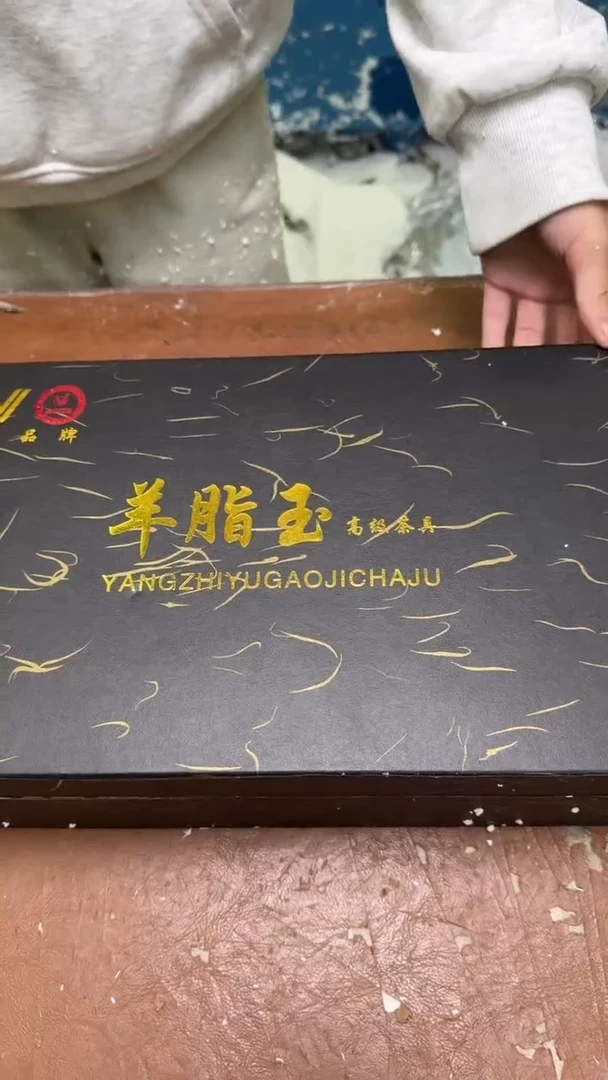 品牌
羊脂玉 高级茶具
YANGZHIYUGAOJICHAJU